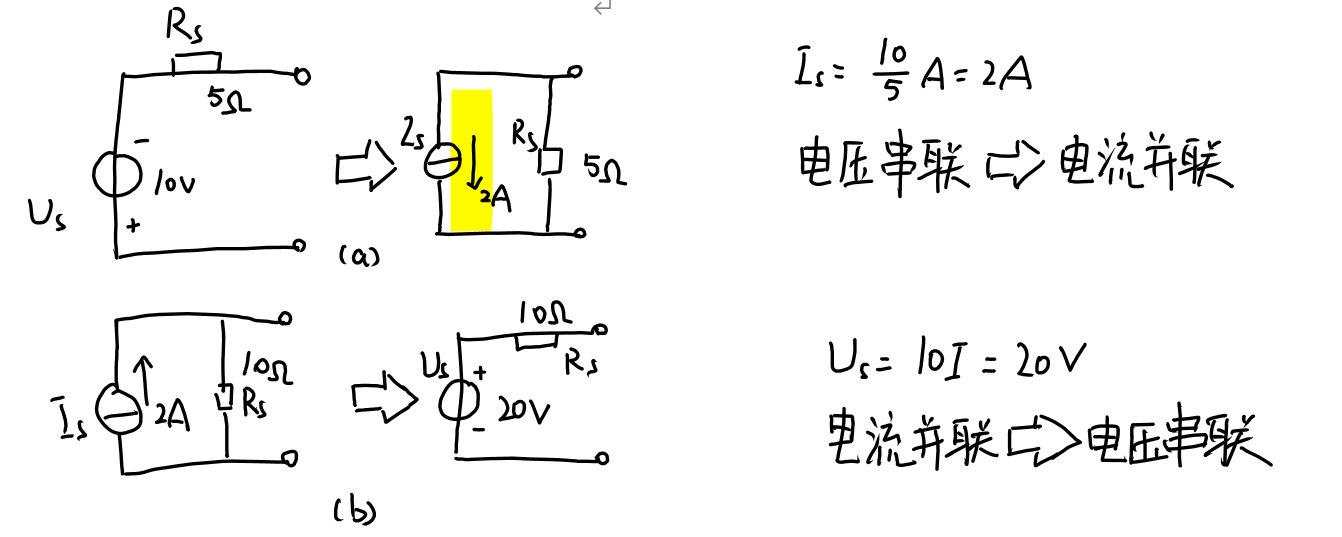 Rs
5Ω
-
10V
Us
+
Is
2A
Rs
5Ω
(a)
Is = 10/5 A = 2A
电压串联 ⇨ 电流并联
Is
2A
10Ω
Rs
10Ω
Rs
Us
+
20V
-
(b)
Us = 10I = 20V
电流并联 ⇨ 电压串联